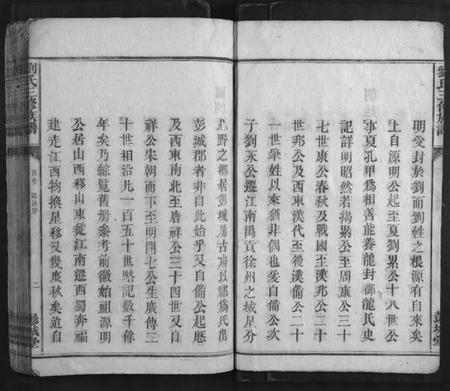 劉氏三修族譜
彭城堂
明受封於劉而劉姓之根源有自來矣
上自源明公起至夏劉累公十八世公
事夏孔甲為相善能養龍封御龍氏史
記詳明昭然若揭累公至周康公三十
七世康公春秋及戰國至漢邦公二十
世邦公及西東漢代至後漢備公二十
一世肇姓以來猶非偶也爰自備公次
子劉永公遷江南禹貢徐州之域星分
之野之鄉居彭城屬古府以郡為氏出
彭城郡者非自此始乎又自備公起歷
及西東南北至唐祥公三十四世又自
祥公宋朝而下至明開七公生廣傳三
十世相沿凡一百五十世略記數千餘
年矣乃綜覽舊冊參考前徽始祖源明
公居山西移山東徙江南遷西蜀奔福
建走江西物換星移又幾度秋矣迨自
劉氏三修族譜
首卷
二
彭城堂